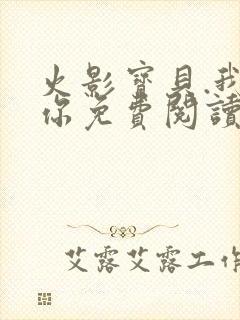 火影寶貝.我
你免費閱讀
艾露艾露工作